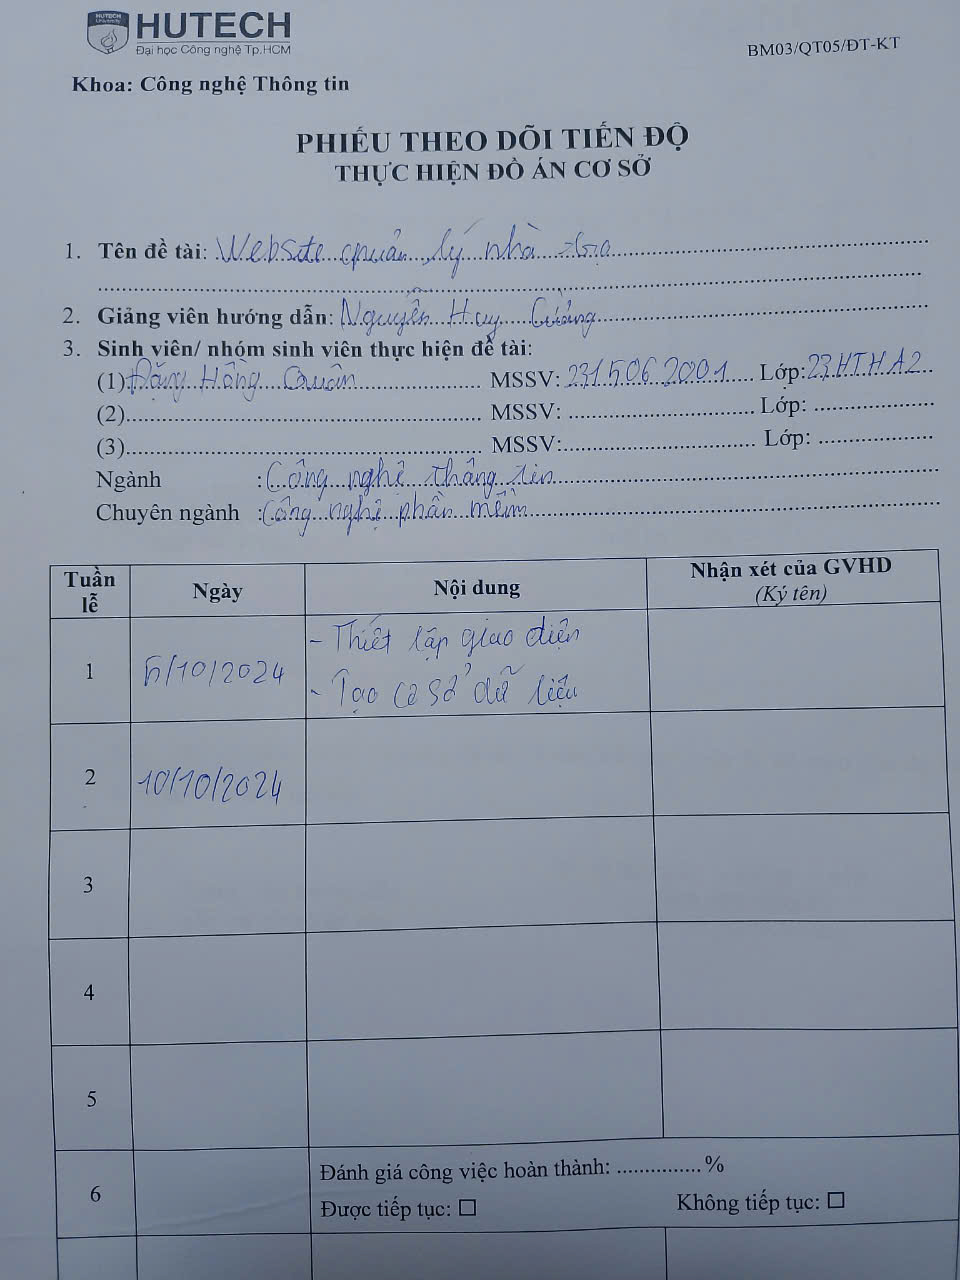 HUTECH University
HUTECH
Đại học Công nghệ Tp.HCM
BM03/QT05/ĐT-KT
Khoa: Công nghệ Thông tin
PHIẾU THEO DÕI TIẾN ĐỘ
THỰC HIỆN ĐỒ ÁN CƠ SỞ
1. Tên đề tài: Website quản lý nhà trọ
2. Giảng viên hướng dẫn: Nguyễn Huy Cường
3. Sinh viên/ nhóm sinh viên thực hiện đề tài:
(1) Đặng Hồng Quân MSSV: 2315062001 Lớp: 23HTHA2
(2) MSSV: Lớp:
(3) MSSV: Lớp:
Ngành : Công nghệ thông tin
Chuyên ngành : Công nghệ phần mềm
Tuần lễ Ngày Nội dung Nhận xét của GVHD (Ký tên)
1 5/10/2024 - Thiết lập giao diện
- Tạo cơ sở dữ liệu
2 10/10/2024
3
4
5
6 Đánh giá công việc hoàn thành: ............... %
Được tiếp tục: ☐ Không tiếp tục: ☐